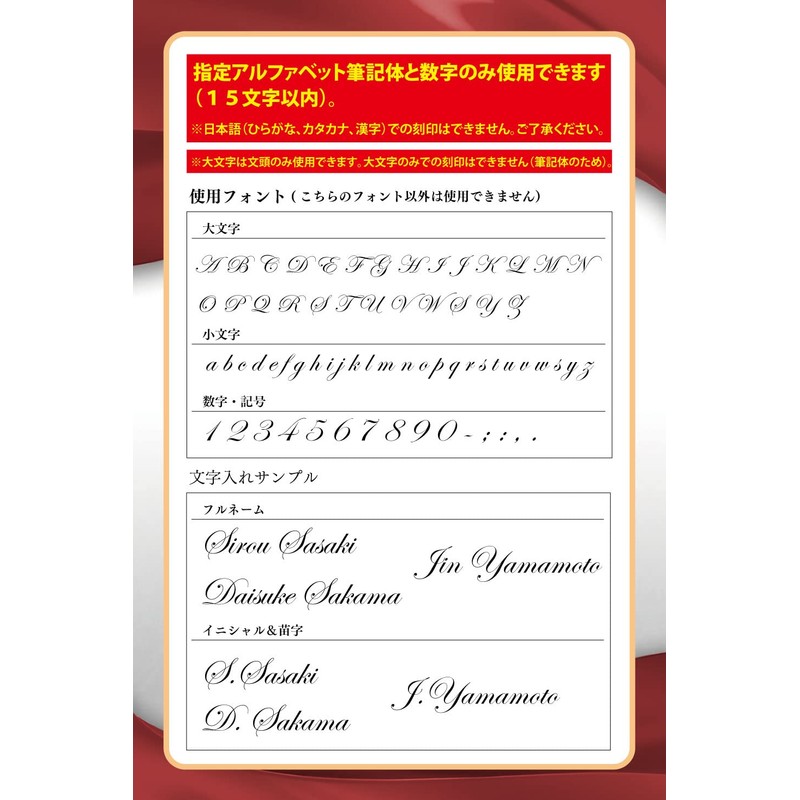 指定アルファベット筆記体と数字のみ使用できます
（１５文字以内）。
※日本語（ひらがな、カタカナ、漢字）での刻印はできません。ご了承ください。
※大文字は文頭のみ使用できます。大文字のみでの刻印はできません（筆記体のため）。
使用フォント（こちらのフォント以外は使用できません）
大文字
A B C D E F G H I J K L M N
O P Q R S T U V W S Y Z
小文字
a b c d e f g h i j k l m n o p q r s t u v w s y z
数字・記号
1 2 3 4 5 6 7 8 9 0 - ; : , .
文字入れサンプル
フルネーム
Sirou Sasaki
Jin Yamamoto
Daisuke Sakama
イニシャル＆苗字
S.Sasaki
J.Yamamoto
D. Sakama